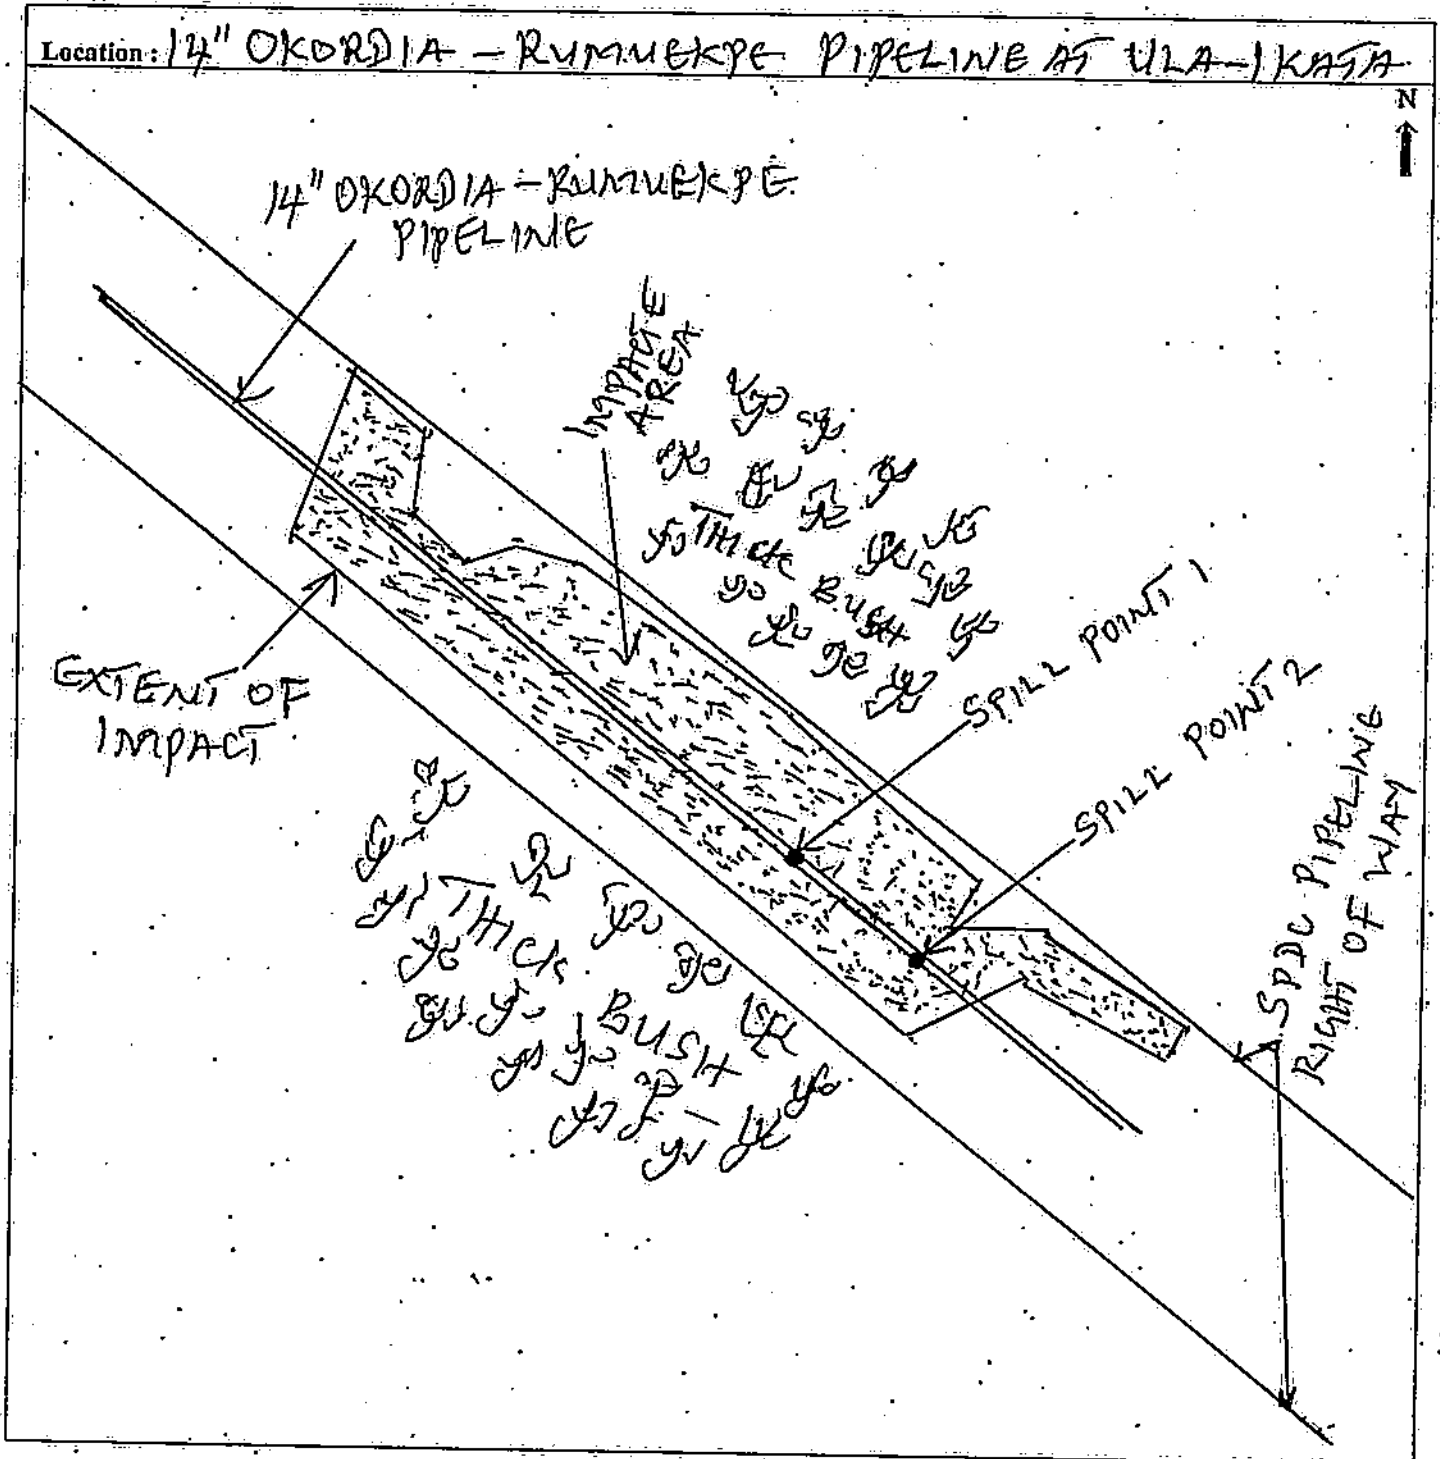 Location: 14" OKORDIA - RUMUEKPE PIPELINE AT ULA-IKATA
N
14" OKORDIA - RUMUEKPE
PIPELINE
IMPACTE
AREA
THICK BUSH
SPILL POINT 1
SPILL POINT 2
EXTENT OF
IMPACT
THICK
BUSH
SPDC PIPELINE
RIGHT OF WAY